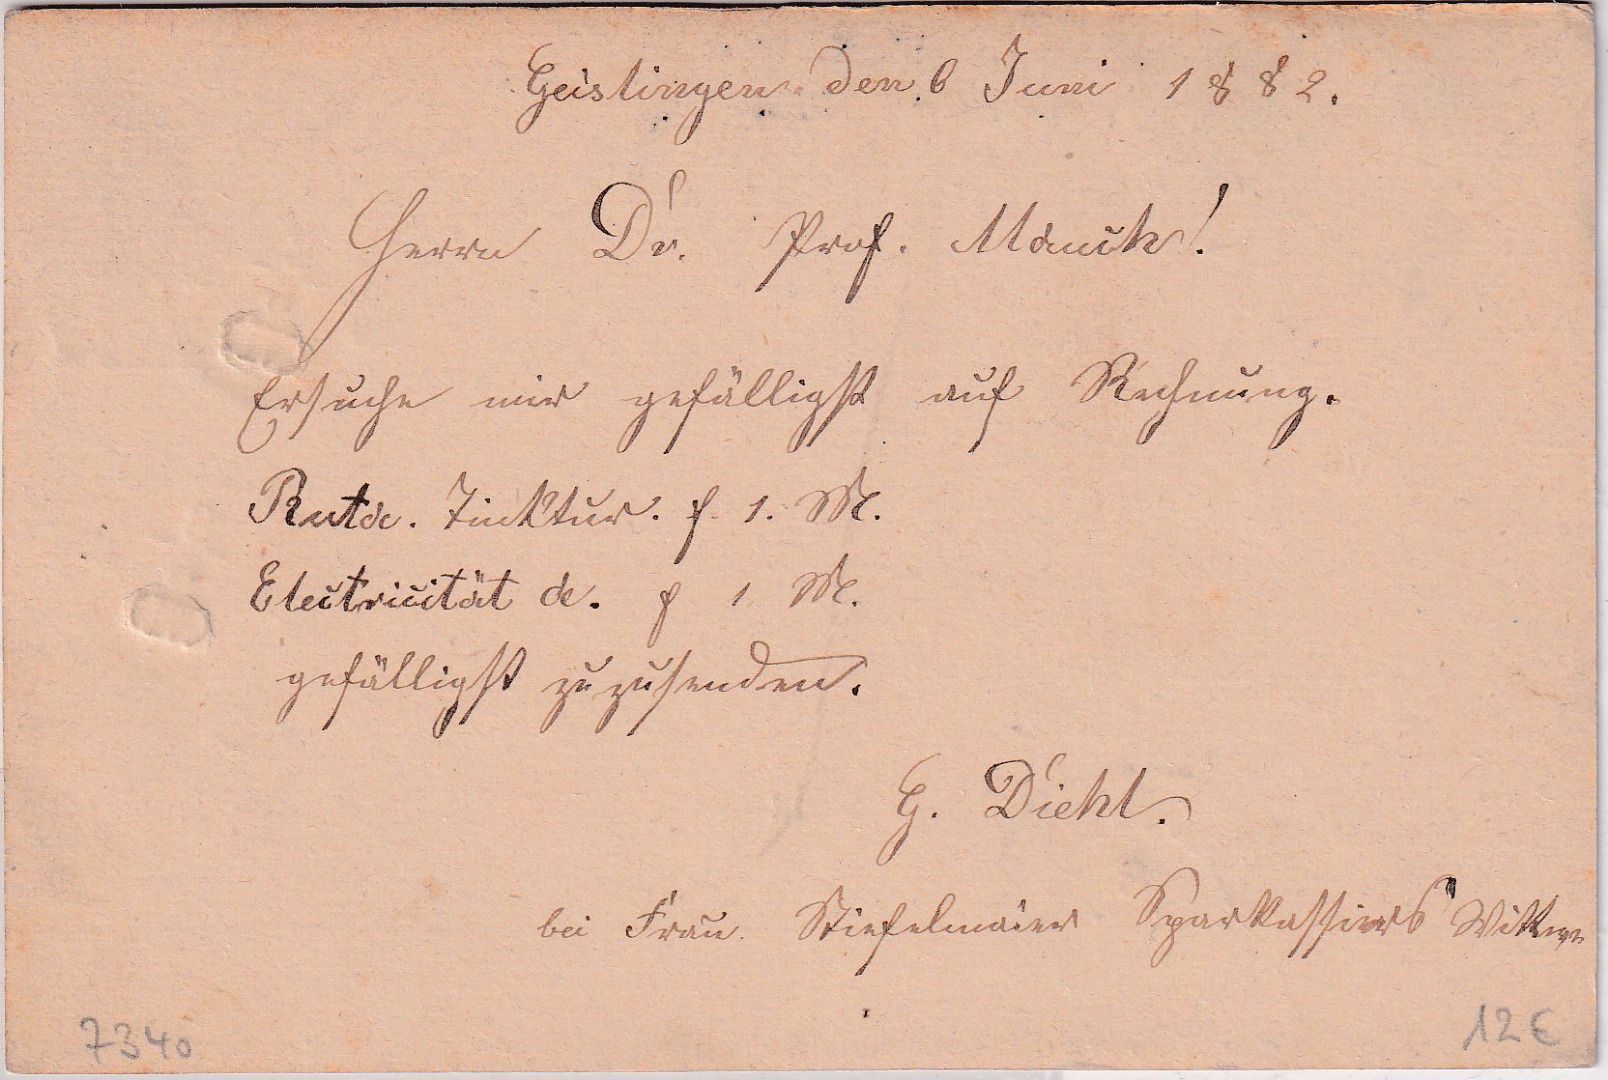 Geislingen. den 6 Juni 1882.
Herrn Dr. Prof. Mauch!
Ersuche mir gefälligst auf Rechnung.
Tinktur. f. 1. M.
Electricität de. f 1 M.
gefälligst zuzusenden.
G. Diehl.
bei Frau Stiefelmaier Sparkassiers Wittwe
7340
12€